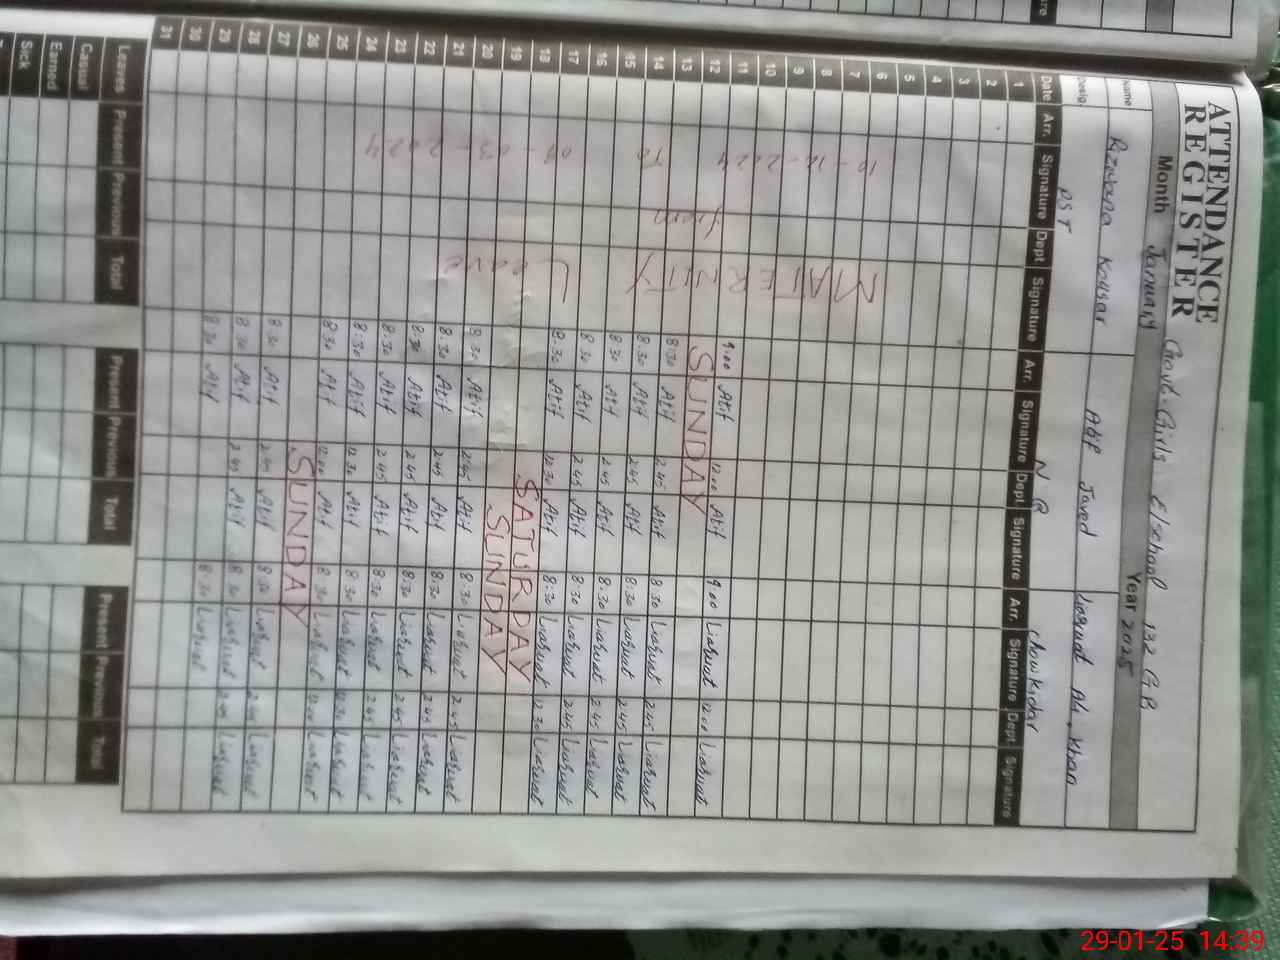 ATTENDANCE
REGISTER
Govt. Girls E/School 132 G.B
Month January Year 2025
Name Rizwana Kousar Atif Javed Liaquat Ali Khan
Desig. PST N Q Chowkidar
Date Arr. Signature Dept Signature Arr. Signature Dept Signature Arr. Signature Dept Signature
1
2
3
4
5
6
7
8
9
10
11
12 9:00 Atif 12:00 Atif 9:00 Liaquat 12:00 Liaquat
13 SUNDAY
14 8:30 Atif 2:45 Atif 8:30 Liaquat 2:45 Liaquat
15 8:30 Atif 2:45 Atif 8:30 Liaquat 2:45 Liaquat
16 8:30 Atif 2:45 Atif 8:30 Liaquat 2:45 Liaquat
17 8:30 Atif 2:45 Atif 8:30 Liaquat 2:45 Liaquat
18 8:30 Atif 12:30 Atif 8:30 Liaquat 12:30 Liaquat
19 SATURDAY
20 SUNDAY
21 8:30 Atif 2:45 Atif 8:30 Liaquat 2:45 Liaquat
22 8:30 Atif 2:45 Atif 8:30 Liaquat 2:45 Liaquat
23 8:30 Atif 2:45 Atif 8:30 Liaquat 2:45 Liaquat
24 8:30 Atif 2:45 Atif 8:30 Liaquat 2:45 Liaquat
25 8:30 Atif 12:30 Atif 8:30 Liaquat 12:30 Liaquat
26 8:30 Atif 12:00 Atif 8:30 Liaquat 12:00 Liaquat
27 SUNDAY
28 8:30 Atif 2:45 Atif 8:30 Liaquat 2:45 Liaquat
29 8:30 Atif 2:45 Atif 8:30 Liaquat 2:45 Liaquat
30 8:30 Atif 8:30 Liaquat
31
MATERNITY
Leave
from
10-12-2024
To
09-03-2024
Leaves Present Previous Total Present Previous Total Present Previous Total
Casual
Earned
Sick
29-01-25 14:39